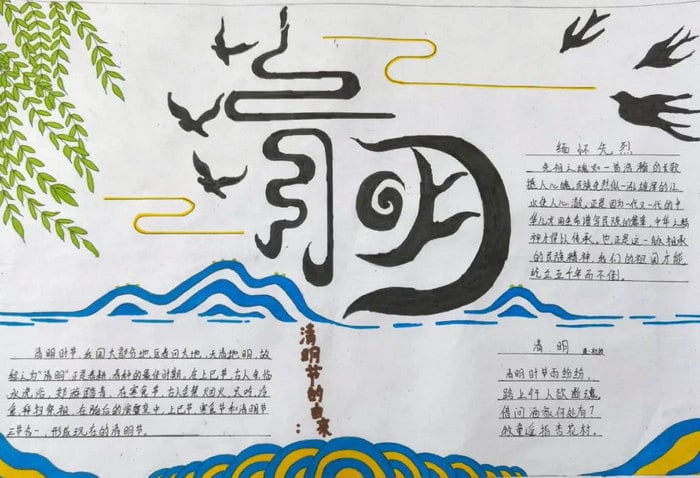 清明
缅怀先烈
先祖之魂如一首浩瀚的长歌
撼人心魄,民族先烈似一泓雄浑的江
水使人心澈。正是因为一代又一代的中
华儿女用生命谱写民族的篇章,中华之精
神才得以传承。也正是这一脉相承
的民族精神,我们的祖国才能
屹立五千年而不倒。
清明节的由来:
清明时节,我国大部分地区春回大地,天清地明,故
称之为“清明”正是春耕、春种的最佳时期。在上巳节,古人会临
水洗浴,郊游踏青,在寒食节,古人会禁烟火,只吃冷
食,祭扫祭祖,在随后的演变中,上巳节寒食节和清明节
三节合一,形成现在的清明节。
清明
唐·杜牧
清明时节雨纷纷,
路上行人欲断魂。
借问酒家何处有?
牧童遥指杏花村。